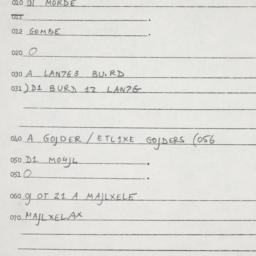 010 DI MORDE
021
022 GOMBE
020 O
030 A LAN7E3 BU.RD
031 ) D1 BURD 12 LAN7G
040 A GOJDER / ETLIXE GOJDERS (056
050 D1 MO4JL
051 O
060 gJ OT 21 A MAJLXELE
070 MAJLXELAX